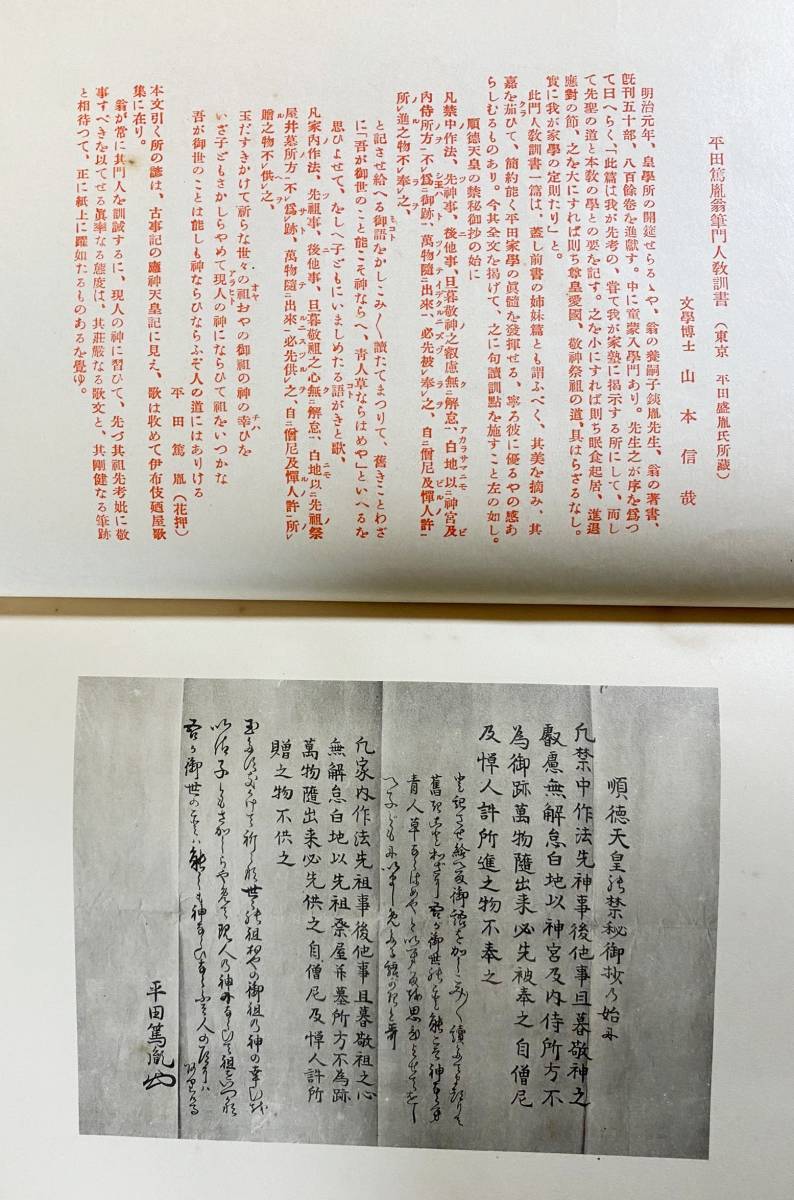 平田篤胤翁筆門人教訓書（東京　平田盛胤氏所藏）
文學博士　山本信哉
明治元年、皇學所の開筵せらるゝや、翁の養嗣子鐵胤先生、翁の著書、
旣刊五十部、八百餘卷を進獻す。中に童蒙入學門あり。先生之が序を爲つ
て曰へらく、「此篇は我が先考の、甞て我が家塾に揭示する所にして、而し
て先聖の道と本敎の學との要を記す。之を小にすれば則ち眠食起居、進退
應對の節、之を大にすれば則ち尊皇愛國、敬神祭祖の道、具はらざるなし。
實に我が家學の定則たり」と。
此門人敎訓書一篇は、蓋し前書の姉妹篇とも謂ふべく、其美を摘み、其
嘉を茹ひて、簡約能く平田家學の眞髓を發揮せる、寧ろ彼に優るやの感あ
らしむるものあり。今其全文を揭げて、之に句讀訓點を施すこと左の如し。
順德天皇の禁秘御抄の始に
凡禁中作法、先神事、後他事、旦暮敬神之叡慮無解怠、白地以神宮及
內侍所方不爲御跡、萬物隨出來必先被奉之、自僧尼及憚人許
所進之物不奉之、
と記させ給へる御語をかしこみ〳〵讀たてまつりて、舊きことわざ
に「吾が御世のこと能こそ神ならへ、青人草ならはめや」といへるを
思ひよせて、をしへ子どもにいましめたる語がきと歌、
凡家內作法、先祖事、後他事、旦暮敬祖之心無解怠、白地以先祖祭
屋幷墓所方不爲跡、萬物隨出來必先供之、自僧尼及憚人許所
贈之物不供之、
玉だすきかけて祈らな世々の祖おやの御祖の神の幸ひを
いざ子どもさかしらやめて現人の神にならひて祖をいつかな
吾が御世のことは能しも神ならひならふぞ人の道にはありける
平田篤胤（花押）
本文引く所の諺は、古事記の應神天皇記に見え、歌は收めて伊布伎廼屋歌
集に在り。
翁が常に其門人を訓誡するに、現人の神に習ひて、先づ其祖先考妣に敬
事すべきを以てせる眞率なる態度は、其莊嚴なる歌文と、其剛健なる筆跡
と相待つて、正に紙上に躍如たるものあるを覺ゆ。
順德天皇能禁秘御抄乃始尓
凡禁中作法先神事後他事旦暮敬神之
叡慮無解怠白地以神宮及內侍所方不
為御跡萬物隨出来必先被奉之自僧尼
及憚人許所進之物不奉之
凡家內作法先祖事後他事旦暮敬祖之心
無解怠白地以先祖祭屋并墓所方不為跡
萬物隨出来必先供之自僧尼及憚人許所
贈之物不供之
平田篤胤